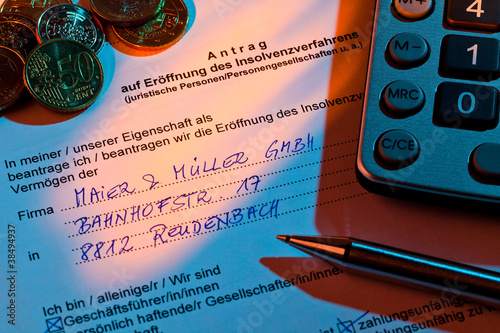 Antrag
auf Eröffnung des Insolvenzverfahrens
(juristische Personen/Personengesellschaften u. a.)
In meiner / unserer Eigenschaft als
beantrage ich / beantragen wir die Eröffnung des Insolvenzv
Vermögen der
Firma MAIER & MÜLLER GMBH
BAHNHOFSTR. 17
in 8812 REUDENBACH
Ich bin / alleinige/r / Wir sind
Geschäftsführer/in/innen
persönlich haftende/r Gesellschafter/in/innen
zahlungsunfähig
50
M-
MRC
C/CE
4
1
0
Adobe Stock | #38494937